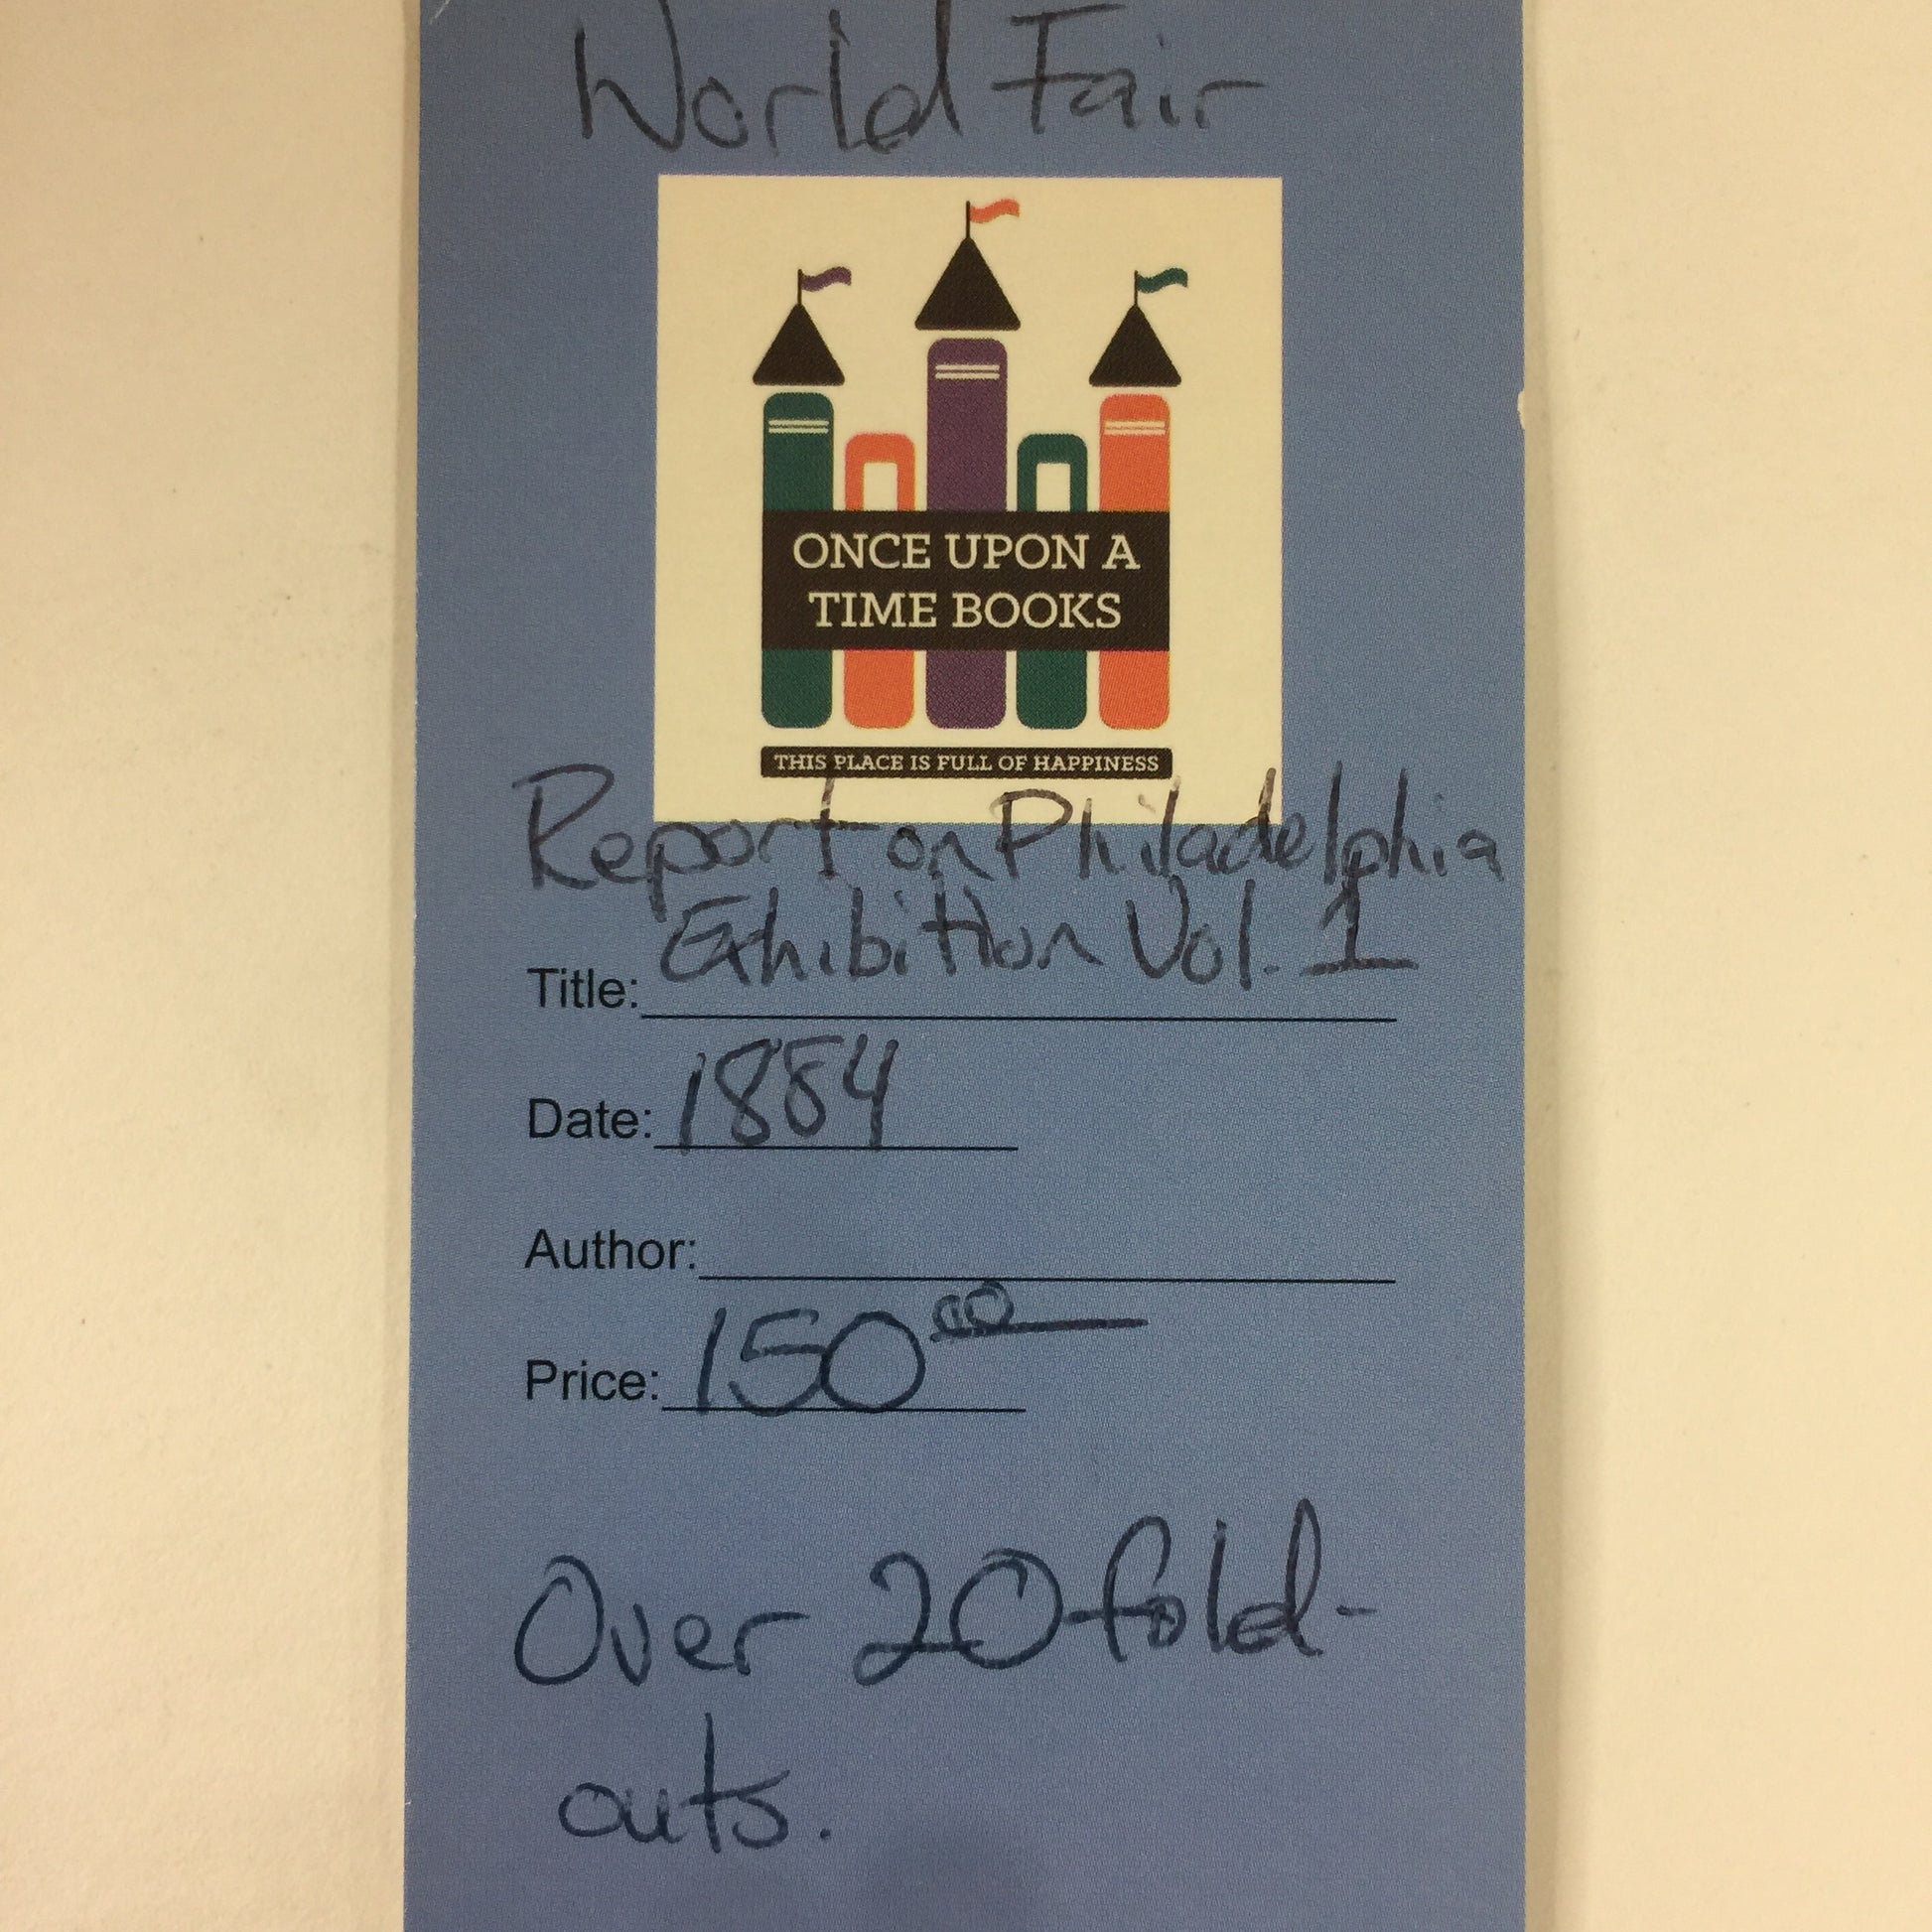 World Fair
ONCE UPON A
TIME BOOKS
THIS PLACE IS FULL OF HAPPINESS
Report on Philadelphia
Exhibition Vol. 1
Title:
Date: 1884
Author:
Price: 150 00
Over 20 fold-
outs.